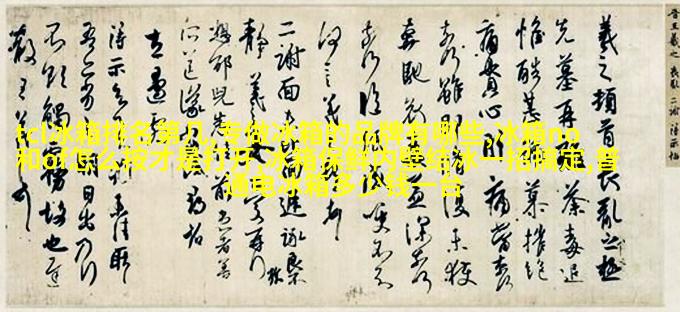 tcl冰箱排名第几,专做冰箱的品牌有哪些,冰箱no
和of怎么按才是打开,冰箱保鲜内壁结冰一招搞定,普
通电冰箱多少钱一台
羲之頓首喪亂之極
先墓再離荼毒追
惟酷甚號慕摧絕
痛貫心肝痛當奈何
奈何雖即脩復未獲
奔馳哀毒益深奈何
奈何臨紙感哽不知
何言羲之頓首
二謝面未比面遲詠良
靜羲之女愛再拜
想邵兒悉佳前患者善
得示知足下猶未佳耿
吾亦劣劣明日出乃行
不欲觸霧故也遲
散王羲之頓首